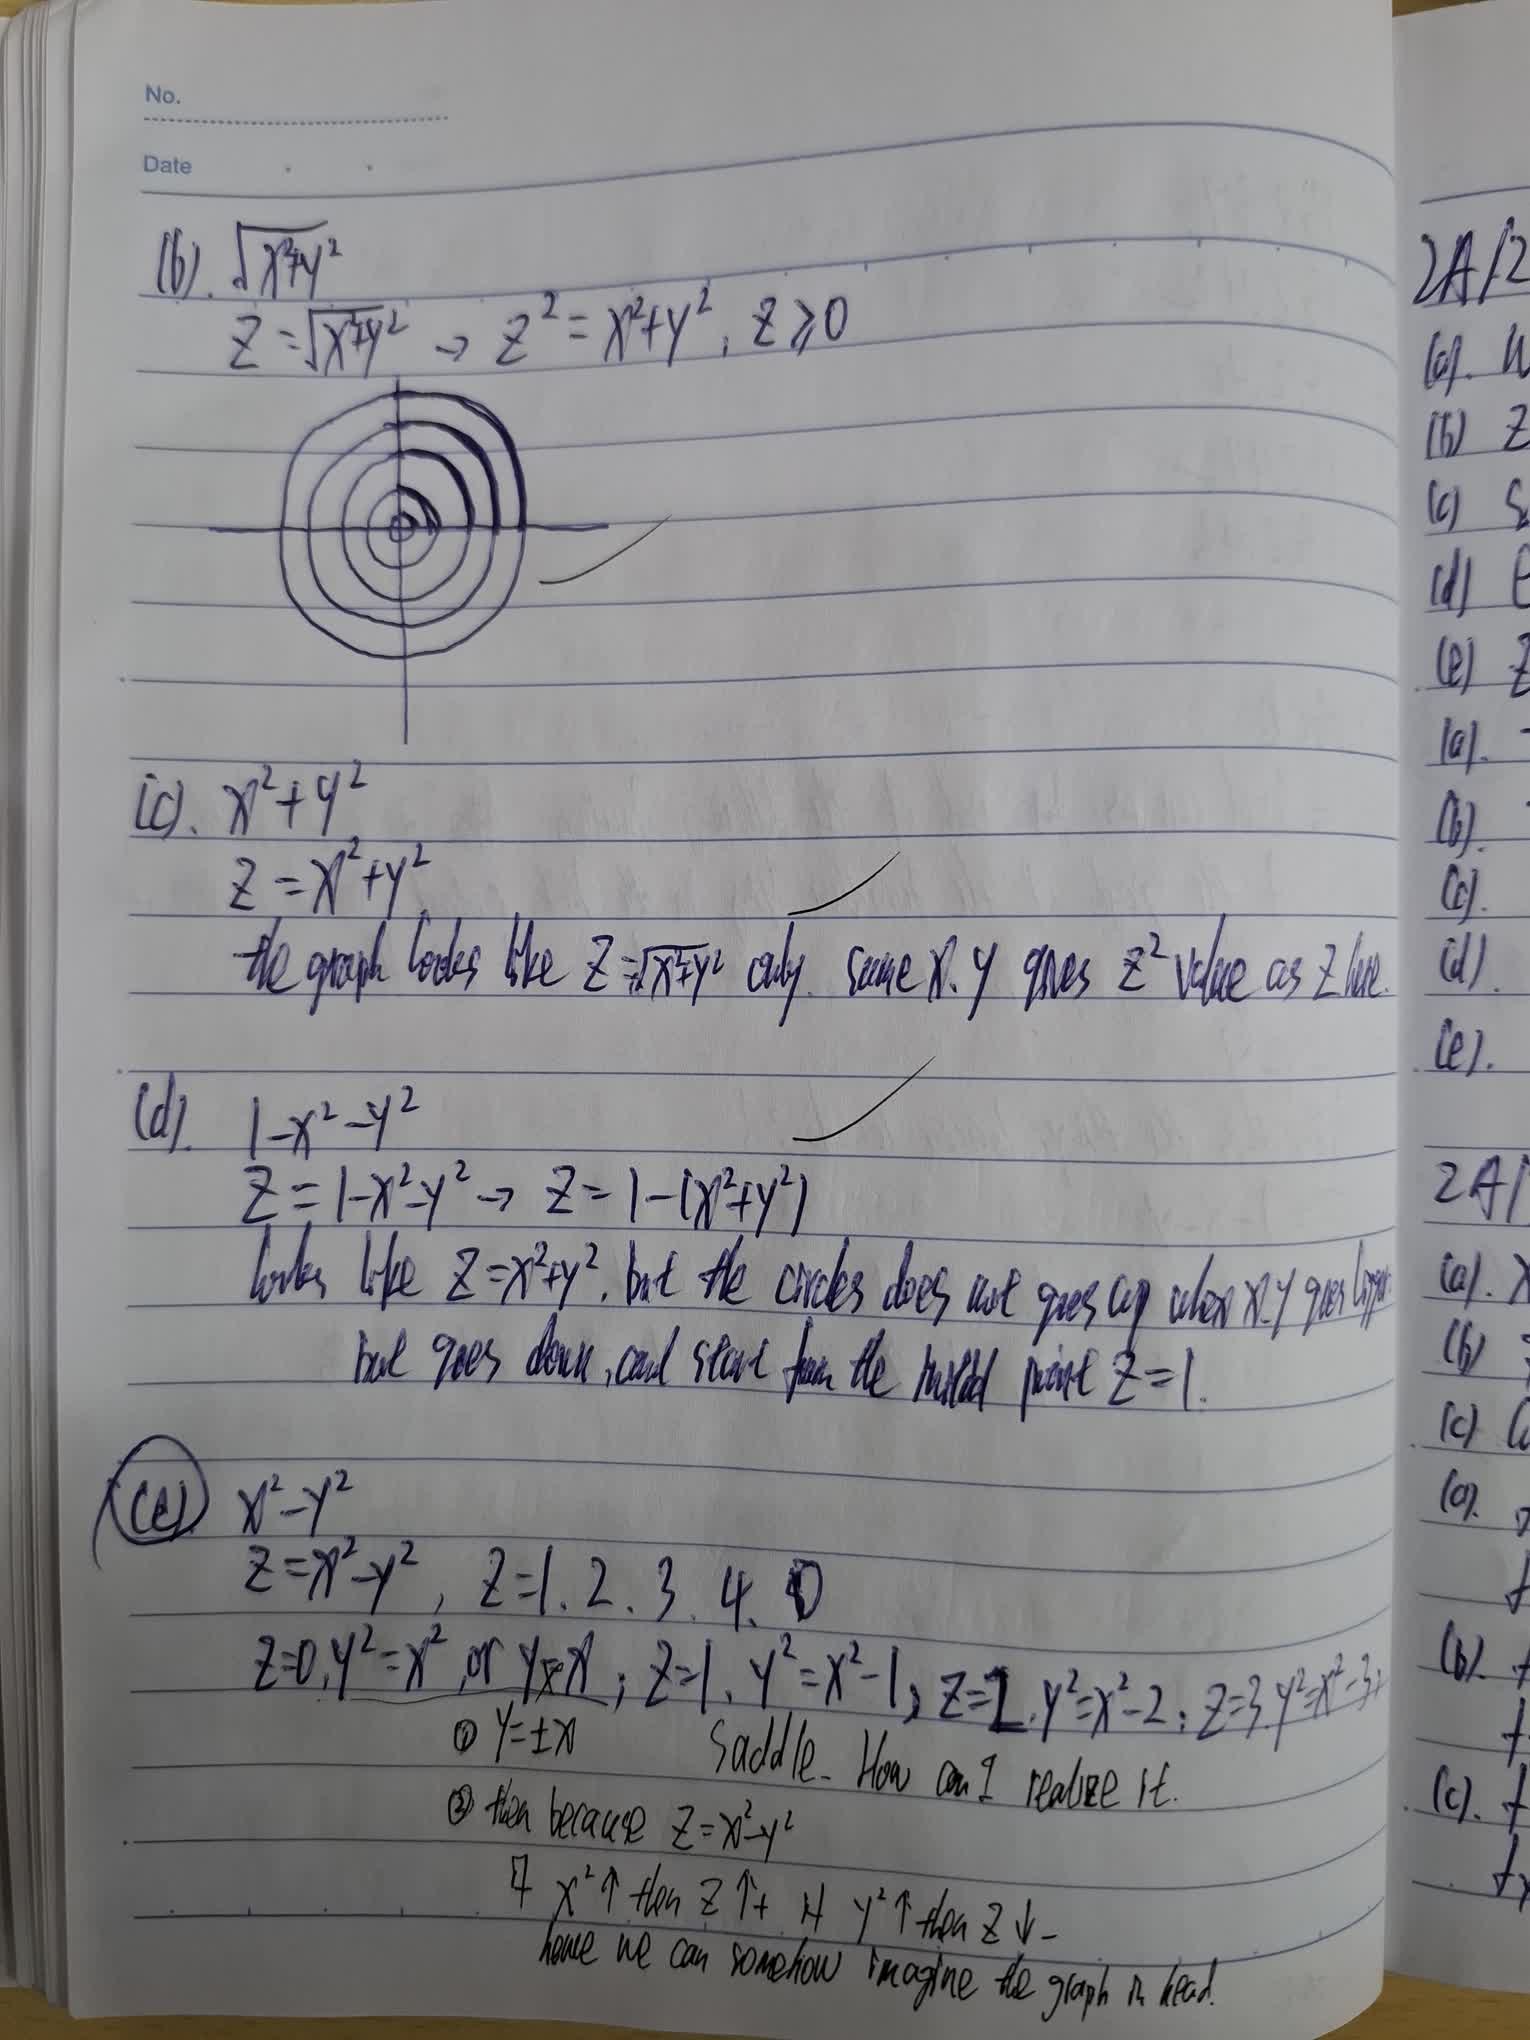 No.
Date
(b). √x²+y²
z=√x²+y² → z²=x²+y², z≥0
(c). x²+y²
z=x²+y²
the graph looks like z=√x²+y² only. same x.y gives z² value as z here.
(d). 1-x²-y²
z=1-x²-y² → z=1-(x²+y²)
looks like z=x²+y², but the circles does not goes up when x.y goes larger.
but goes down, and start from the point z=1.
(e). x²-y²
z=x²-y², z=1.2.3.4.0
z=0.y²=x², or y=x; z=1.y²=x²-1; z=2.y²=x²-2; z=3.y²=x²-3;
① y=±x Saddle. How can I realize it.
② then because z=x²-y²
if x²↑ then z↑+ if y²↑ then z↓-
hence we can somehow imagine the graph in head.
2A/2
(a).
(b) z
(c)
(d)
(e) z
(a).
(b).
(c).
(d).
(e).
2A/
(a). x
(b)
(c)
(a).
(b).
(c).